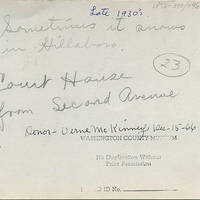 Late 1930's
Sometimes it snows
in Hillsboro.
23
Court House
from Second Avenue
Donor - Verne McKinney Dec-15-66
WASHINGTON COUNTY MUSEUM
No Duplication Without
Prior Permission
ID No.